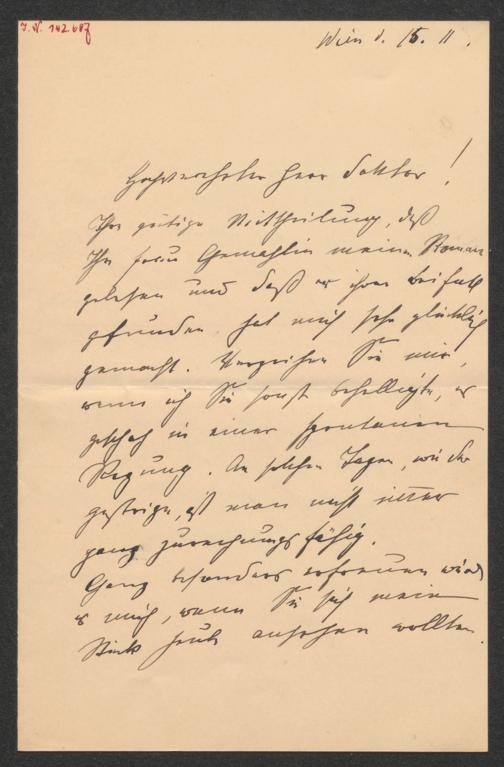 I. N. 142.687
Wien d. 15. 11.
Hochverehrter Herr Doktor!
Ihre gütige Mittheilung, daß
Ihre Frau Gemahlin meinen Roman
gelesen und daß er ihren Beifall
gefunden, hat mich sehr glücklich
gemacht. Verzeihen Sie mir,
wenn ich Sie sonst behelligte, es
geschah in einer spontanen
Regung. An solchen Tagen, wie der
gestrige, ist man nicht immer
ganz zurechnungsfähig.
Ganz besonders erfreuen wird
es mich, wenn Sie sich mein
Stück heute ansehen wollten.